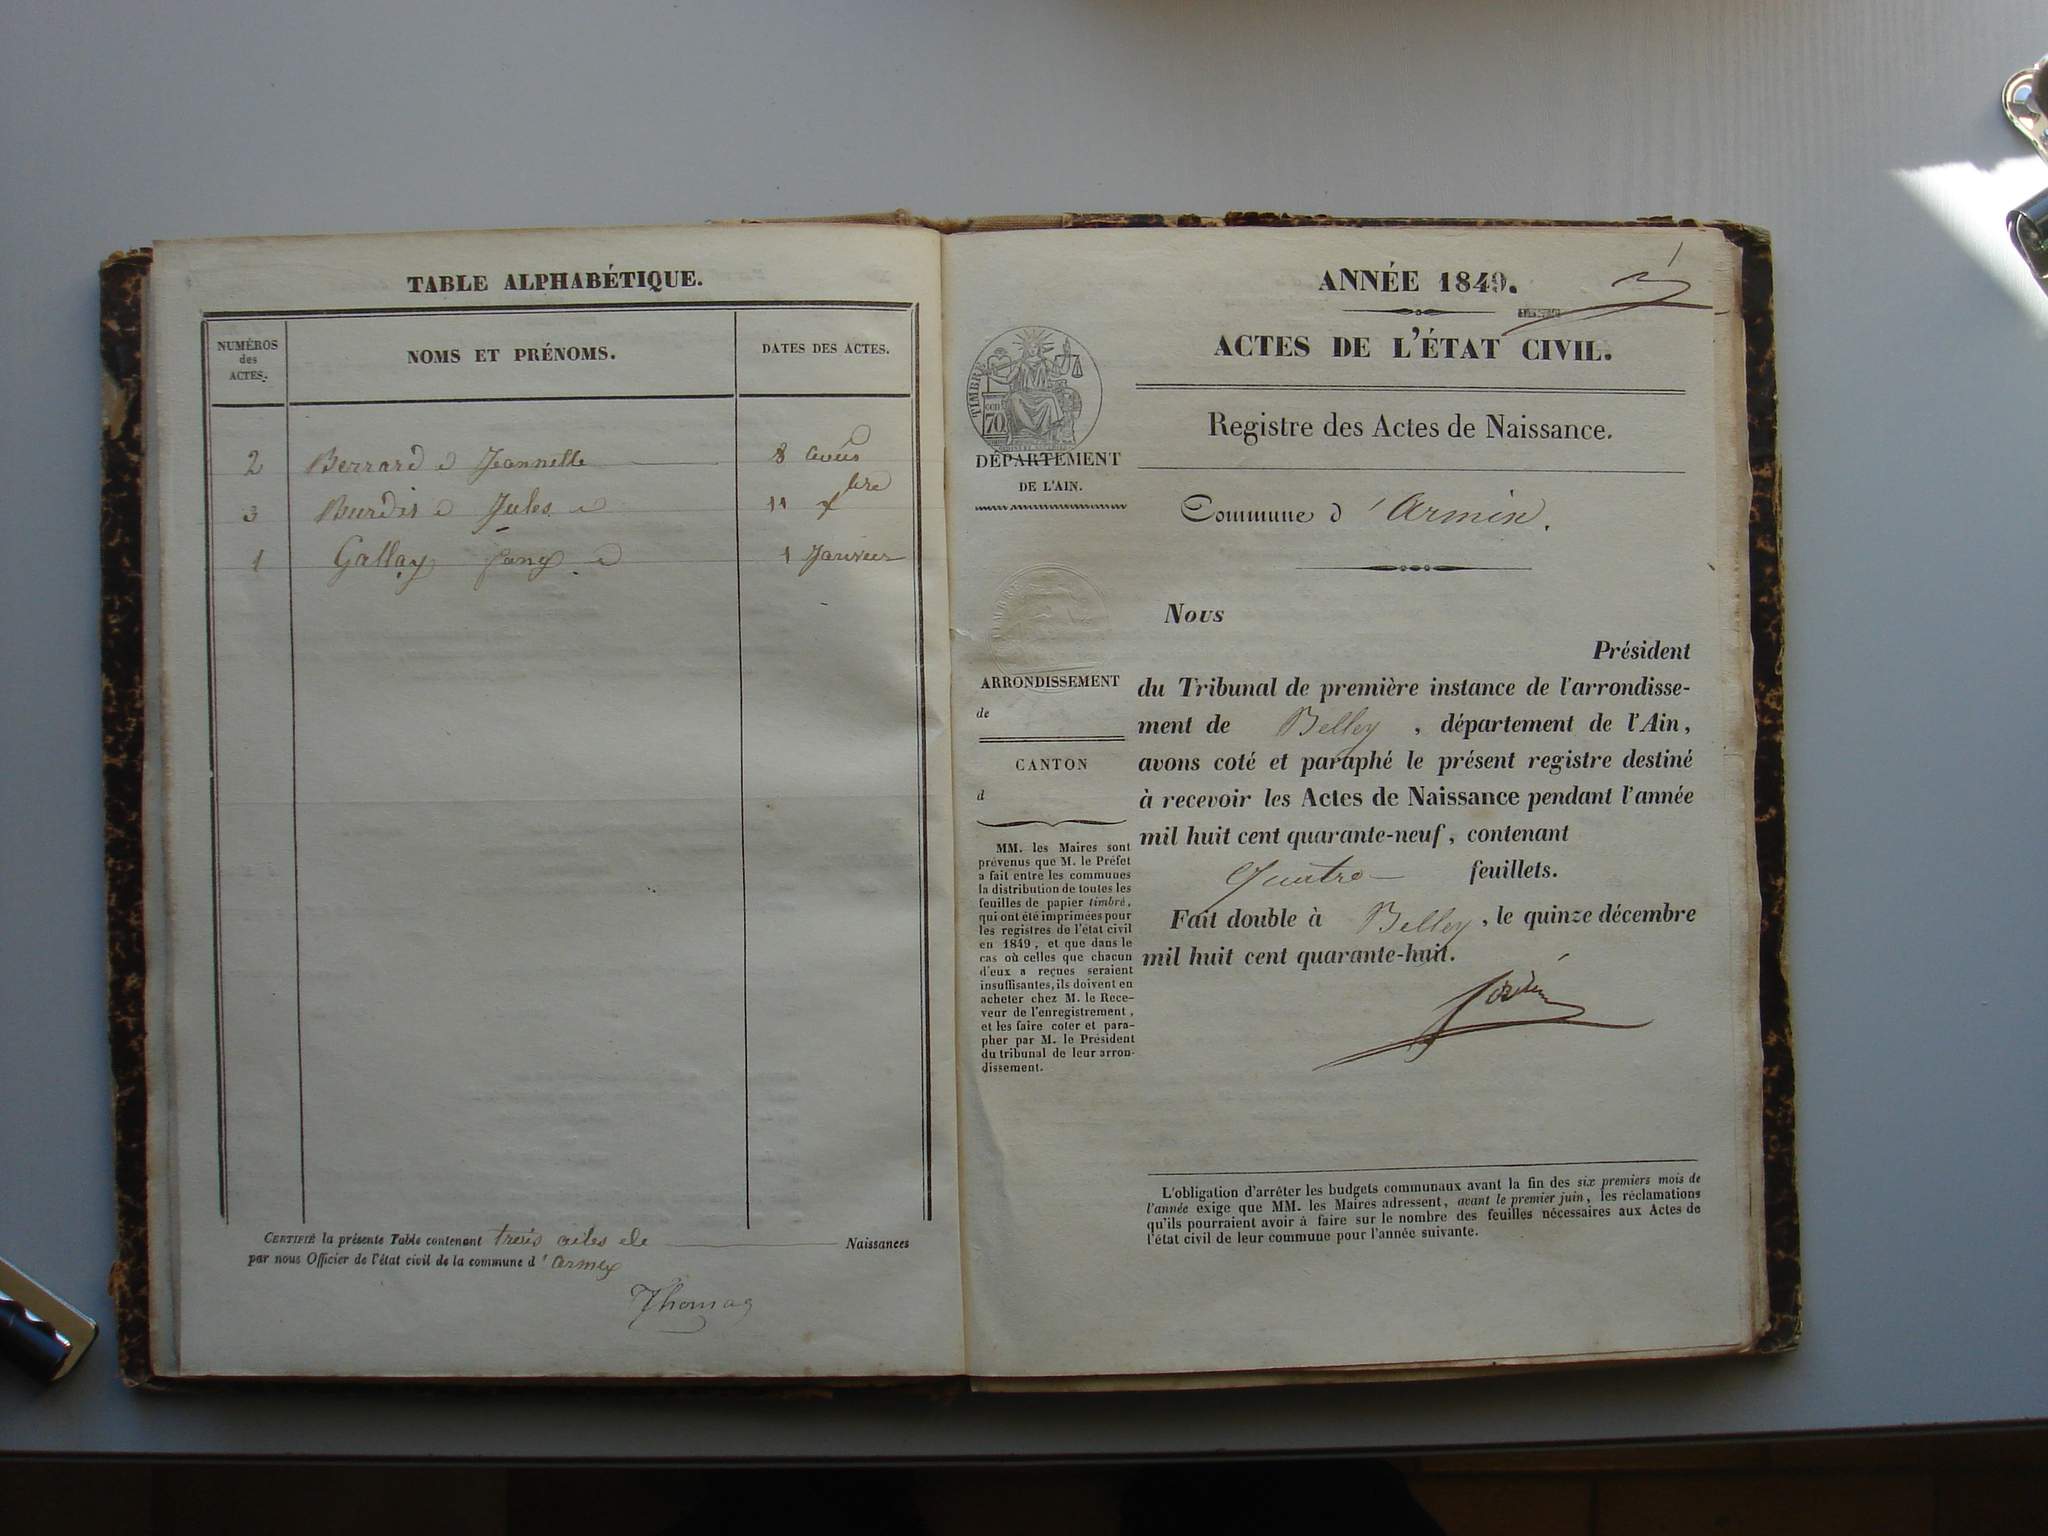 TABLE ALPHABÉTIQUE.
NUMÉROS
des
ACTES.
NOMS ET PRÉNOMS.
DATES DES ACTES.
2 Berrard Jeannette 8
3 Burdis Jules 11
1 Gallay 1 Janvier
CERTIFIÉ la présente Table contenant trois actes de Naissances
par nous Officier de l'état civil de la commune d'
Thomas
ANNÉE 1849.
ACTES DE L'ÉTAT CIVIL.
Registre des Actes de Naissance.
TIMBRE
70
DÉPARTEMENT
DE L'AIN.
Commune d'Armix.
ARRONDISSEMENT
de
CANTON
d
MM. les Maires sont
prévenus que M. le Préfet
a fait entre les communes
la distribution de toutes les
feuilles de papier timbré,
qui ont été imprimées pour
les registres de l'état civil
en 1849, et que dans le
cas où celles que chacun
d'eux a reçues seraient
insuffisantes, ils doivent en
acheter chez M. le Rece-
veur de l'enregistrement,
et les faire coter et para-
pher par M. le Président
du tribunal de leur arron-
dissement.
Nous
Président
du Tribunal de première instance de l'arrondisse-
ment de Belley, département de l'Ain,
avons coté et paraphé le présent registre destiné
à recevoir les Actes de Naissance pendant l'année
mil huit cent quarante-neuf, contenant
Quatre feuillets.
Fait double à Belley, le quinze décembre
mil huit cent quarante-huit.
L'obligation d'arrêter les budgets communaux avant la fin des six premiers mois de
l'année exige que MM. les Maires adressent, avant le premier juin, les réclamations
qu'ils pourraient avoir à faire sur le nombre des feuilles nécessaires aux Actes de
l'état civil de leur commune pour l'année suivante.